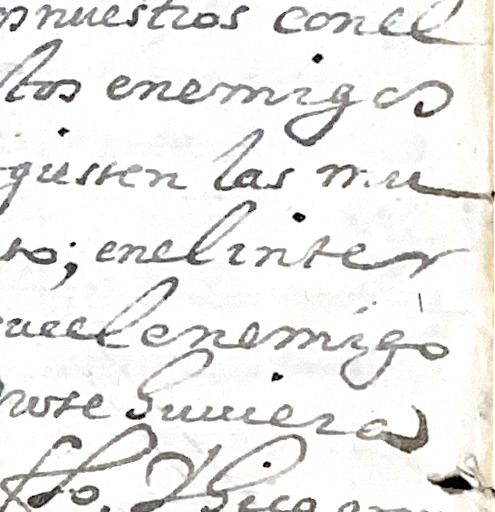 nuestros conel
los enemigos
gussen las mu
to; enel inter
veel enemigo
nose huuiera